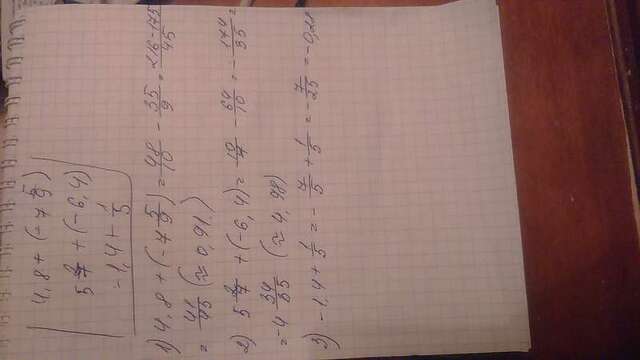 4,8 + (-7 5/9)
5 2/7 + (-6,4)
-1,4 + 1/5
1) 4,8 + (-7 5/9) = 48/10 - 35/9 = 216-175/45
= 41/45 (≈ 0,91)
2) 5 2/7 + (-6,4) = - 64/10 = - 174/35 =
= -4 34/35 (≈ 4,98)
3) -1,4 + 1/5 = - 7/5 + 1/5 = - 7/25 = -0,28